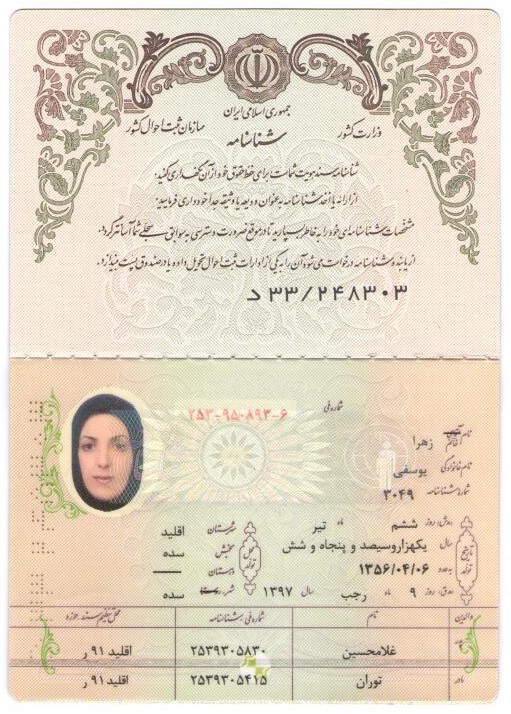 جمهوری اسلامی ایران
وزارت کشور
سازمان ثبت احوال کشور
شناسنامه
شناسنامه سند هویت شماست برای حفظ حقوق خود از آن نگهداری کنید.
از ارائه یا اخذ شناسنامه به عنوان ودیعه یا وثیقه جدا خودداری فرمایید.
مشخصات شناسنامه‌ای خود را به خاطر بسپارید تا در موقع ضرورت دسترسی به سوابق سجلی شما آسانتر گردد.
از یابنده شناسنامه درخواست می شود آن را به یکی از ادارات ثبت احوال تحویل داده یا در صندوق پست بیندازد.
د ۳۳/۲۴۸۳۰۳
شماره ملی ۲۵۳-۹۵۰۸۹۳-۶
نام خانم زهرا
نام خانوادگی یوسفی
شماره شناسنامه ۳۰۴۹
تاریخ تولد
روز ششم ماه تیر
سال یکهزاروسیصد و پنجاه و شش
به عدد ۱۳۵۶/۰۴/۰۶
روز ۹ ماه رجب سال ۱۳۹۷
محل تولد
شهرستان اقلید
بخش سده
دهستان
شهر سده
والدین نام شماره ملی/شناسنامه محل تنظیم سند/حوزه
پدر غلامحسین ۲۵۳۹۳۰۵۸۳۰ اقلید ۹۱ ر
مادر توران ۲۵۳۹۳۰۵۴۱۵ اقلید ۹۱ ر